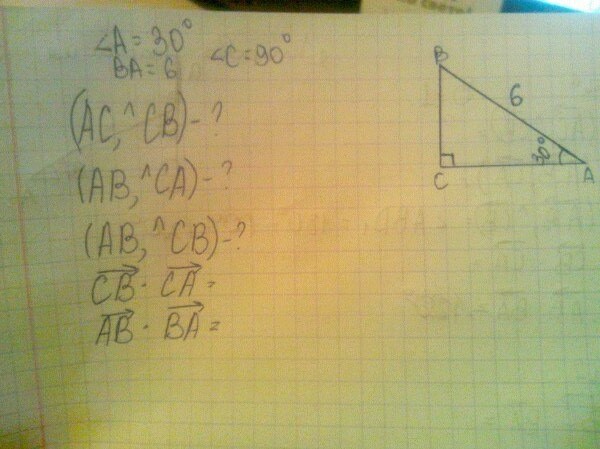 ∠A = 30° ∠C = 90°
BA = 6
(AC,^CB) - ?
(AB,^CA) - ?
(AB,^CB) - ?
CB · CA =
AB · BA =
B
6
30°
C
A